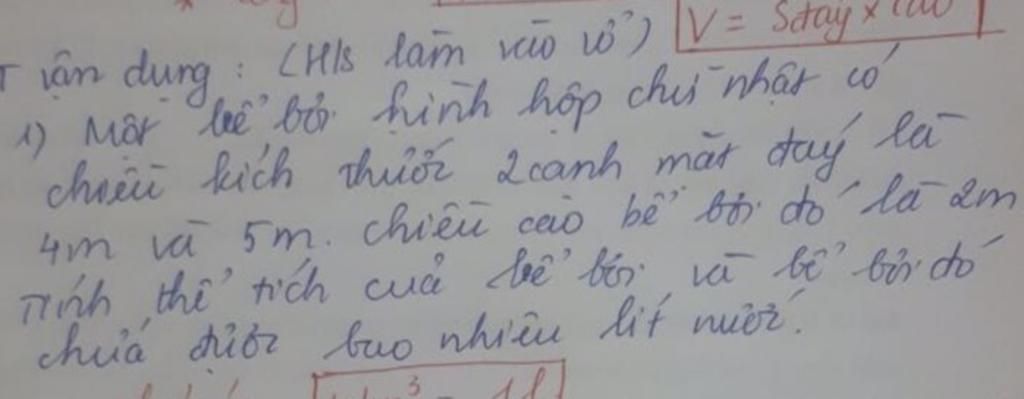 V = Sđáy × cao
T vận dụng : (H/s làm vào vở)
1) Một bể bơi hình hộp chữ nhật có
chiều kích thước 2 cạnh mặt đáy là
4m và 5m. chiều cao bể bơi đó là 2m
Tính thể tích của bể bơi và bể bơi đó
chứa được bao nhiêu lít nước.